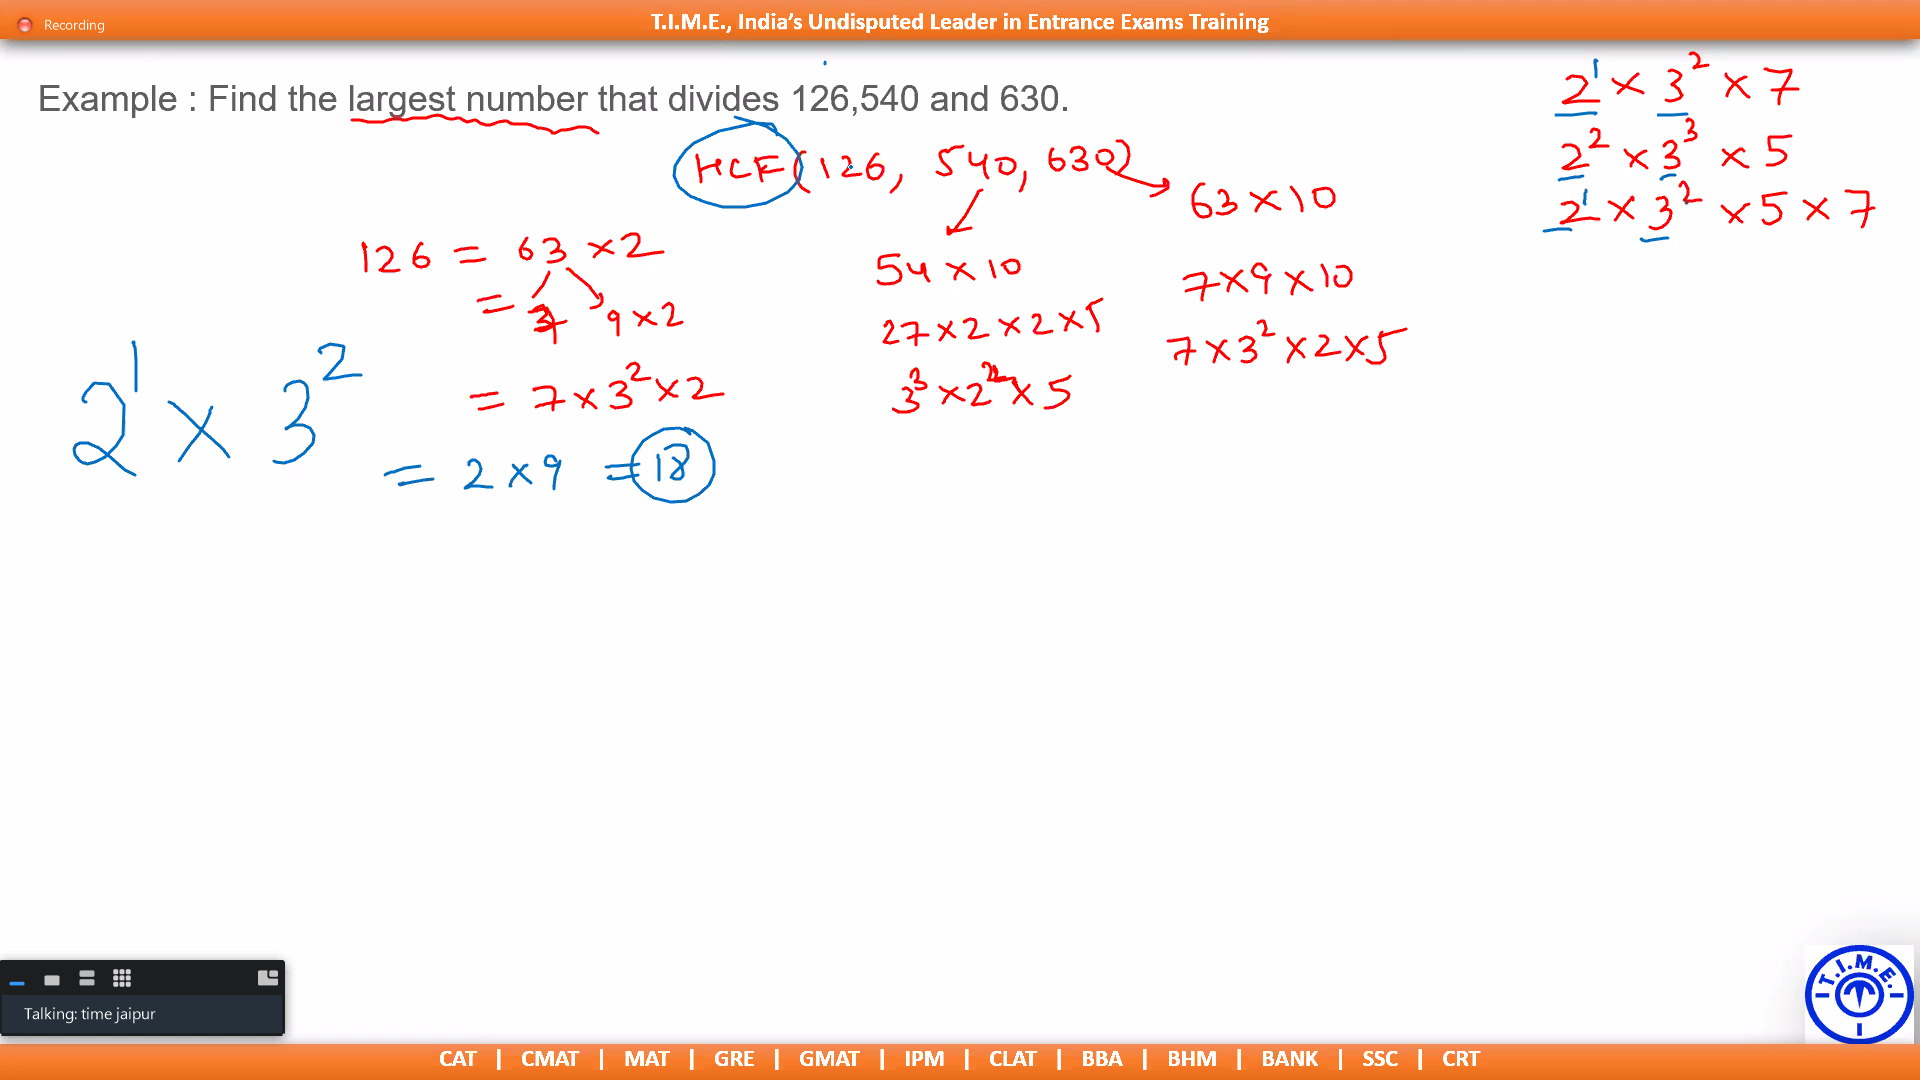 Recording
T.I.M.E., India's Undisputed Leader in Entrance Exams Training
Example : Find the largest number that divides 126,540 and 630.
HCF (126, 540, 630)
2¹ × 3² × 7
2² × 3³ × 5
2¹ × 3² × 5 × 7
126 = 63 × 2
= 7 9 × 2
= 7 × 3² × 2
54 × 10
27 × 2 × 2 × 5
3³ × 2² × 5
63 × 10
7 × 9 × 10
7 × 3² × 2 × 5
2¹ × 3²
= 2 × 9 = 18
Talking: time jaipur
T.I.M.E.
CAT | CMAT | MAT | GRE | GMAT | IPM | CLAT | BBA | BHM | BANK | SSC | CRT